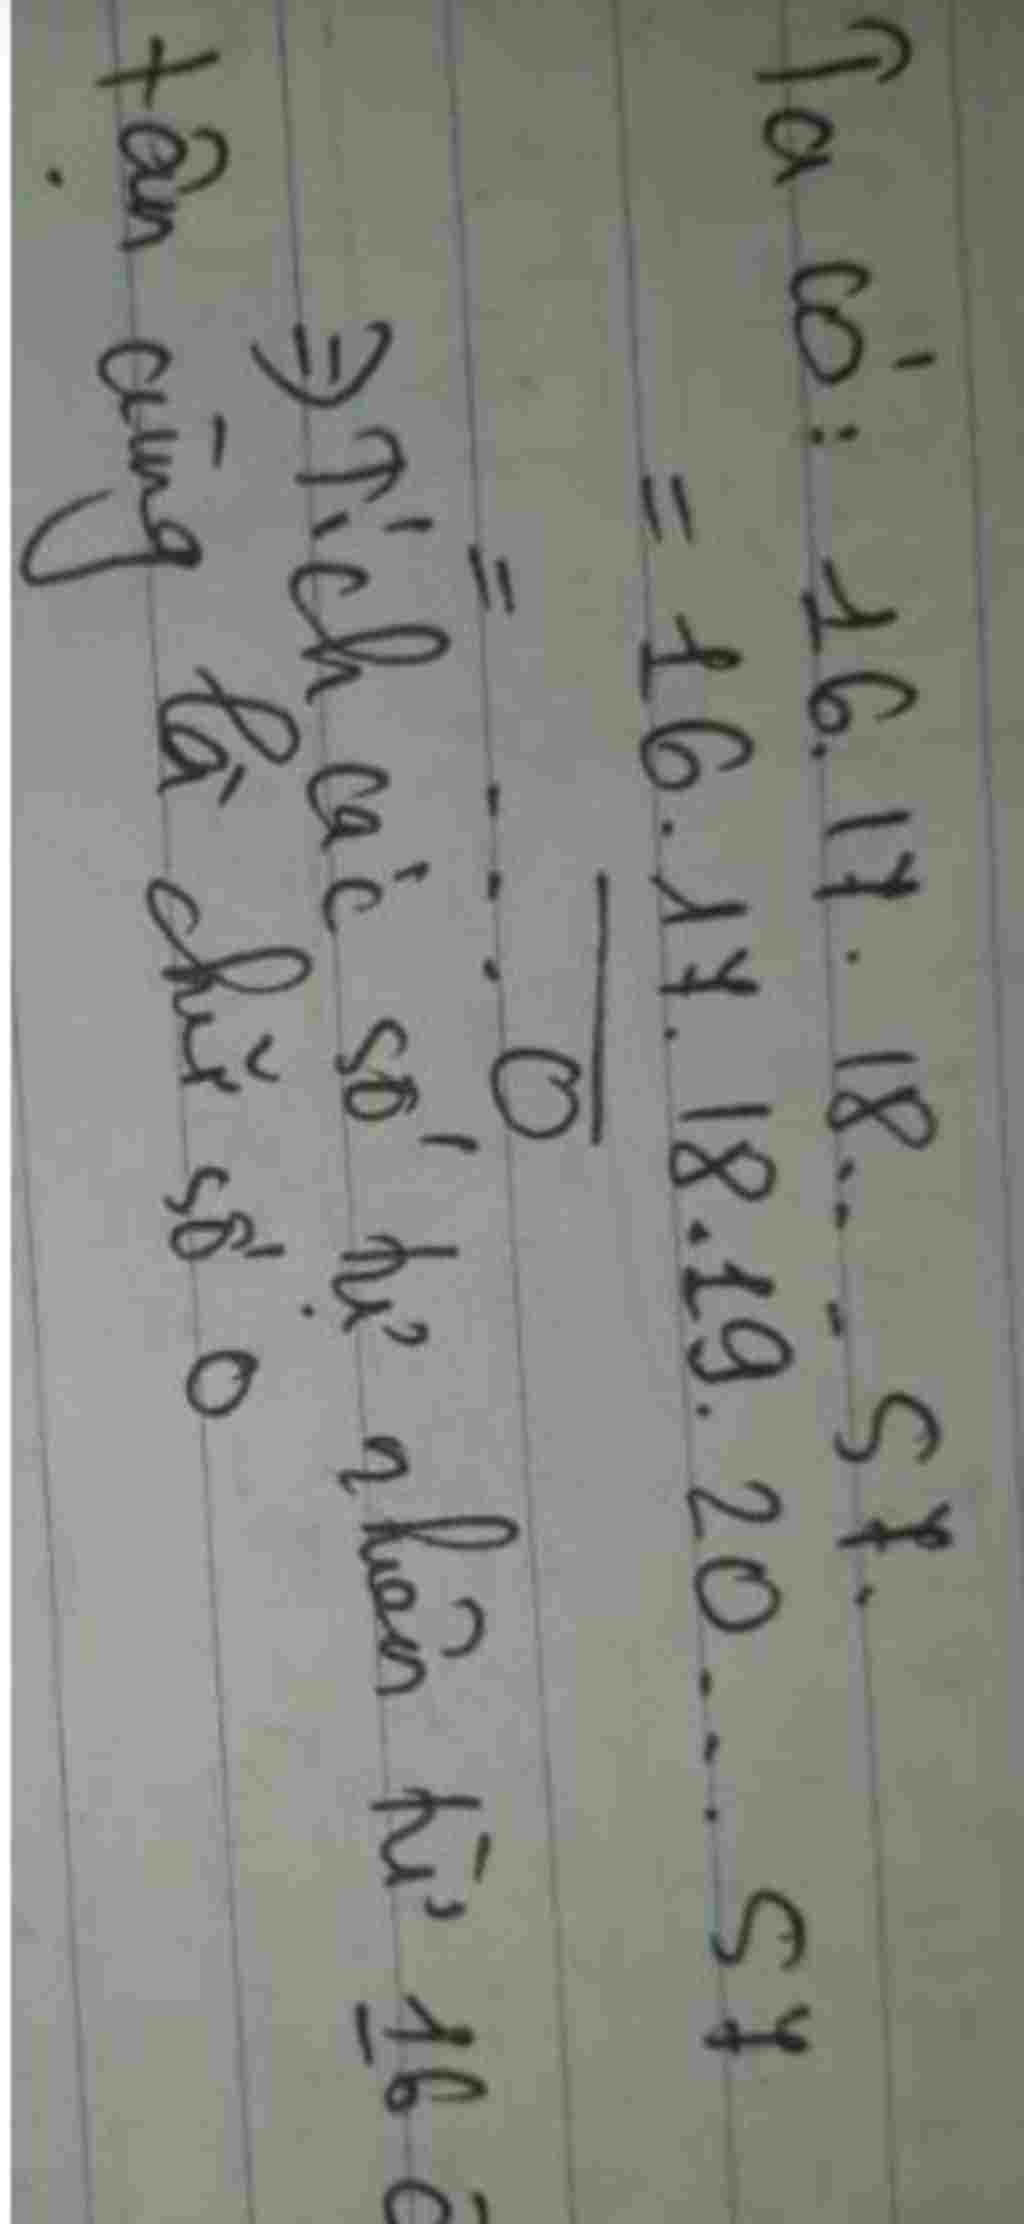 Ta có: 16.17.18....57.
= 16.17.18.19.20....57
= ....0
⇒ Tích các số tự nhiên từ 16
tận cùng là chữ số 0